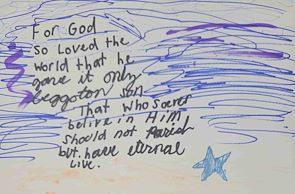 For God
So Loved the
world that he
gave it only
beggoton son
That whosoever
belive in Him
should not Parish
but have eternal
Live.